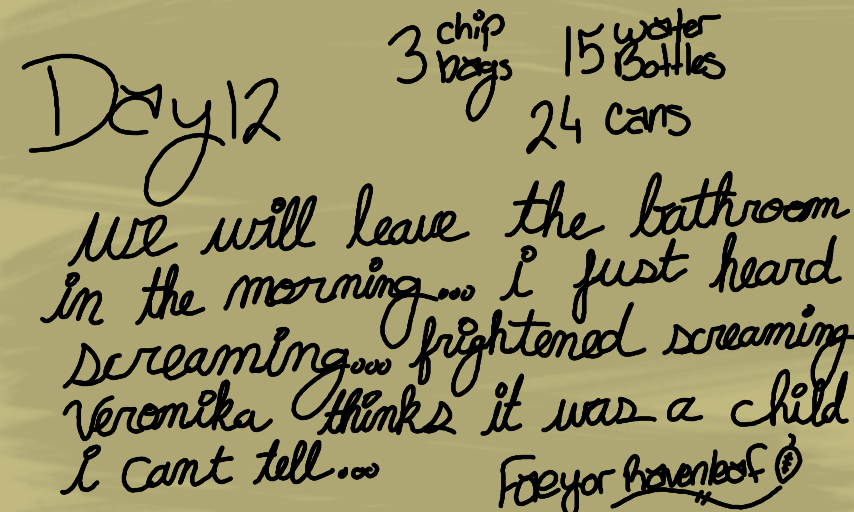 Day 12
3 chip bags
15 water Bottles
24 cans
We will leave the bathroom
in the morning... i just heard
screaming... frightened screaming
Veronika thinks it was a child
i cant tell...
Faeyor Ravenleaf